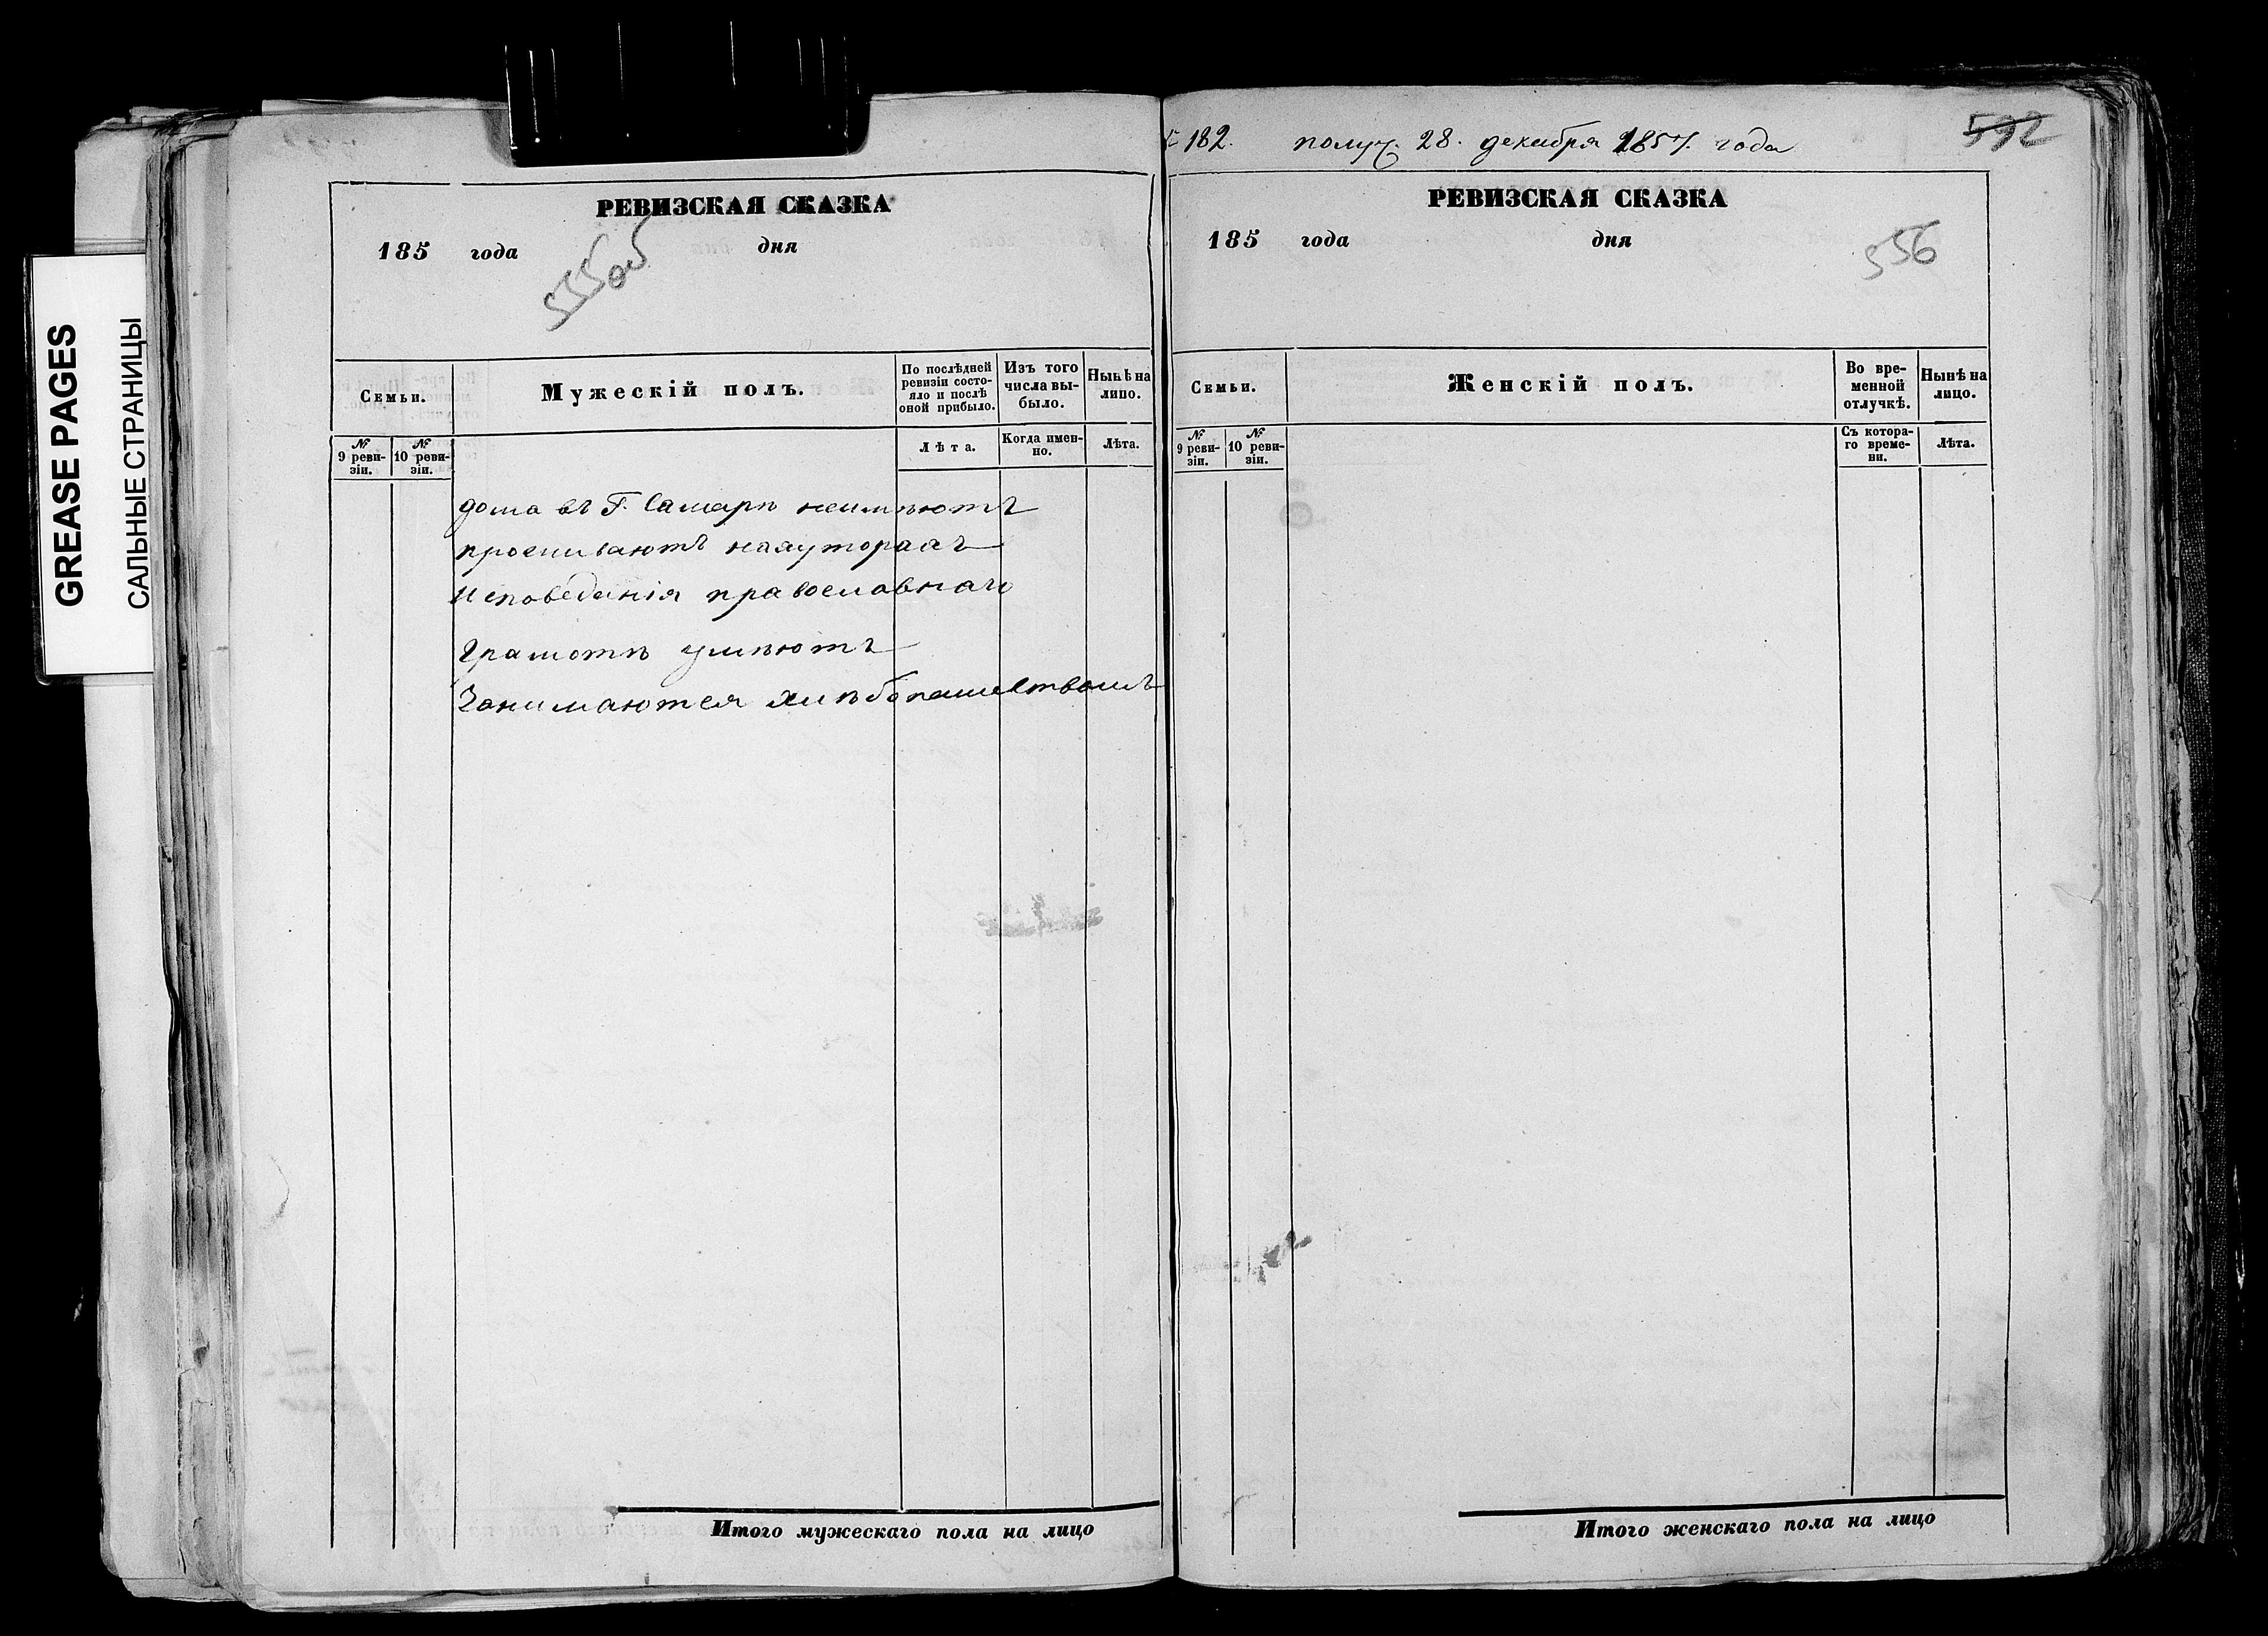 GREASE PAGES
САЛЬНЫЕ СТРАНИЦЫ
РЕВИЗСКАЯ СКАЗКА
185 года дня
555 об
Семьи.
Мужескій полъ.
По послѣдней ревизіи состо-
яло и послѣ
оной прибыло.
Изъ того
числа вы-
было.
Нынѣ на
лицо.
№
9 реви-
зіи.
№
10 реви-
зіи.
Лѣта.
Когда имен-
но.
Лѣта.
дома въ Г. Самарѣ неимѣютъ
проживаютъ нахуторахъ
Исповеданія православнаго
Грамотѣ умѣютъ
Занимаются хлѣбопашествомъ
Итого мужескаго пола на лицо
182. получ. 28. декабря 1857. года
592
РЕВИЗСКАЯ СКАЗКА
185 года дня
556
Семьи.
Женскій полъ.
Во вре-
менной
отлучкѣ.
Нынѣ на
лицо.
№
9 реви-
зіи.
№
10 реви-
зіи.
Съ котора-
го време-
ни.
Лѣта.
Итого женскаго пола на лицо